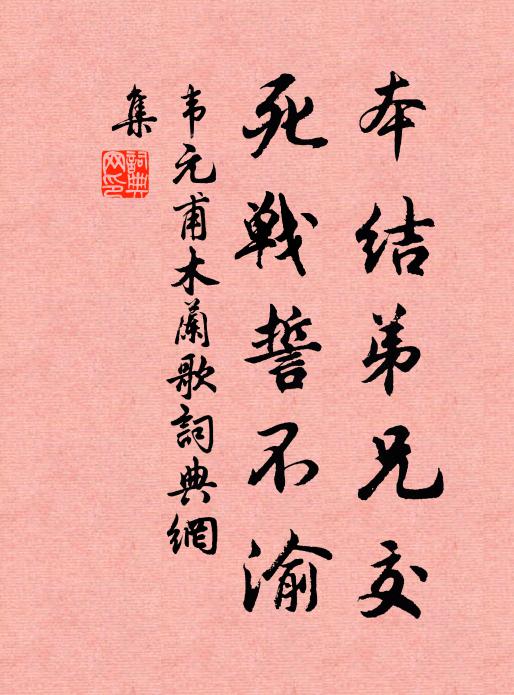 本结弟兄交
死戦誓不渝
韦元甫木蘭歌詞典網
集
詞典
网印